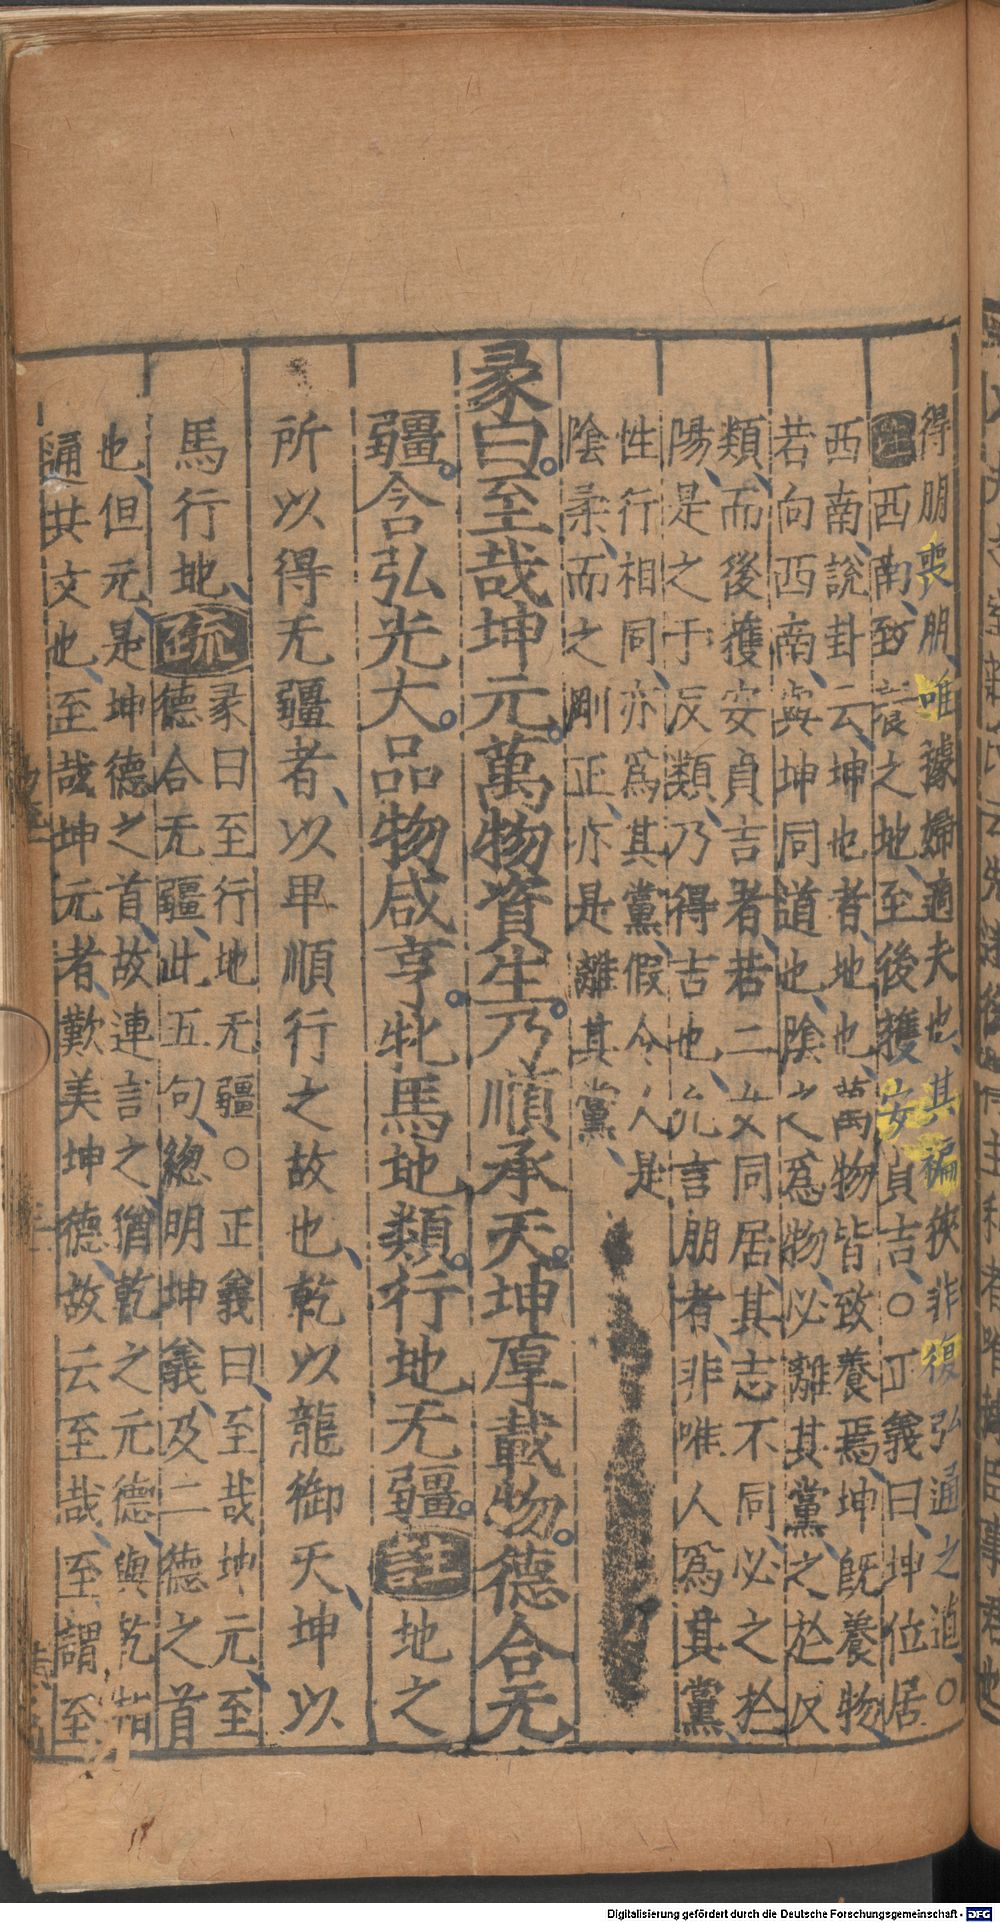 得朋喪朋唯據婦適夫也其褊狹非復弘通之道○
註西南致養之地至後獲安貞吉○正義曰坤位居
西南說卦云坤也者地也萬物皆致養焉坤旣養物
若向西南與坤同道也陰之爲物必離其黨之於反
類而後獲安貞吉者若二女同居其志不同必之於
陽是之于反類乃得吉也凢言朋者非唯人爲其黨
性行相同亦爲其黨假令人是
陰柔而之剛正亦是離其黨
彖曰至哉坤元萬物資生乃順承天坤厚載物德合无
疆含弘光大品物咸亨牝馬地類行地无疆註地之
所以得无疆者以卑順行之故也乾以龍御天坤以
馬行地疏
彖曰至行地无疆○正義曰至哉坤元至
德合无疆此五句總明坤義及二德之首
也但元是坤德之首故連言之猶乾之元德與乾相
通共文也至哉坤元者歎美坤德故云至哉至謂至
Digitalisierung gefördert durch die Deutsche Forschungsgemeinschaft - DFG